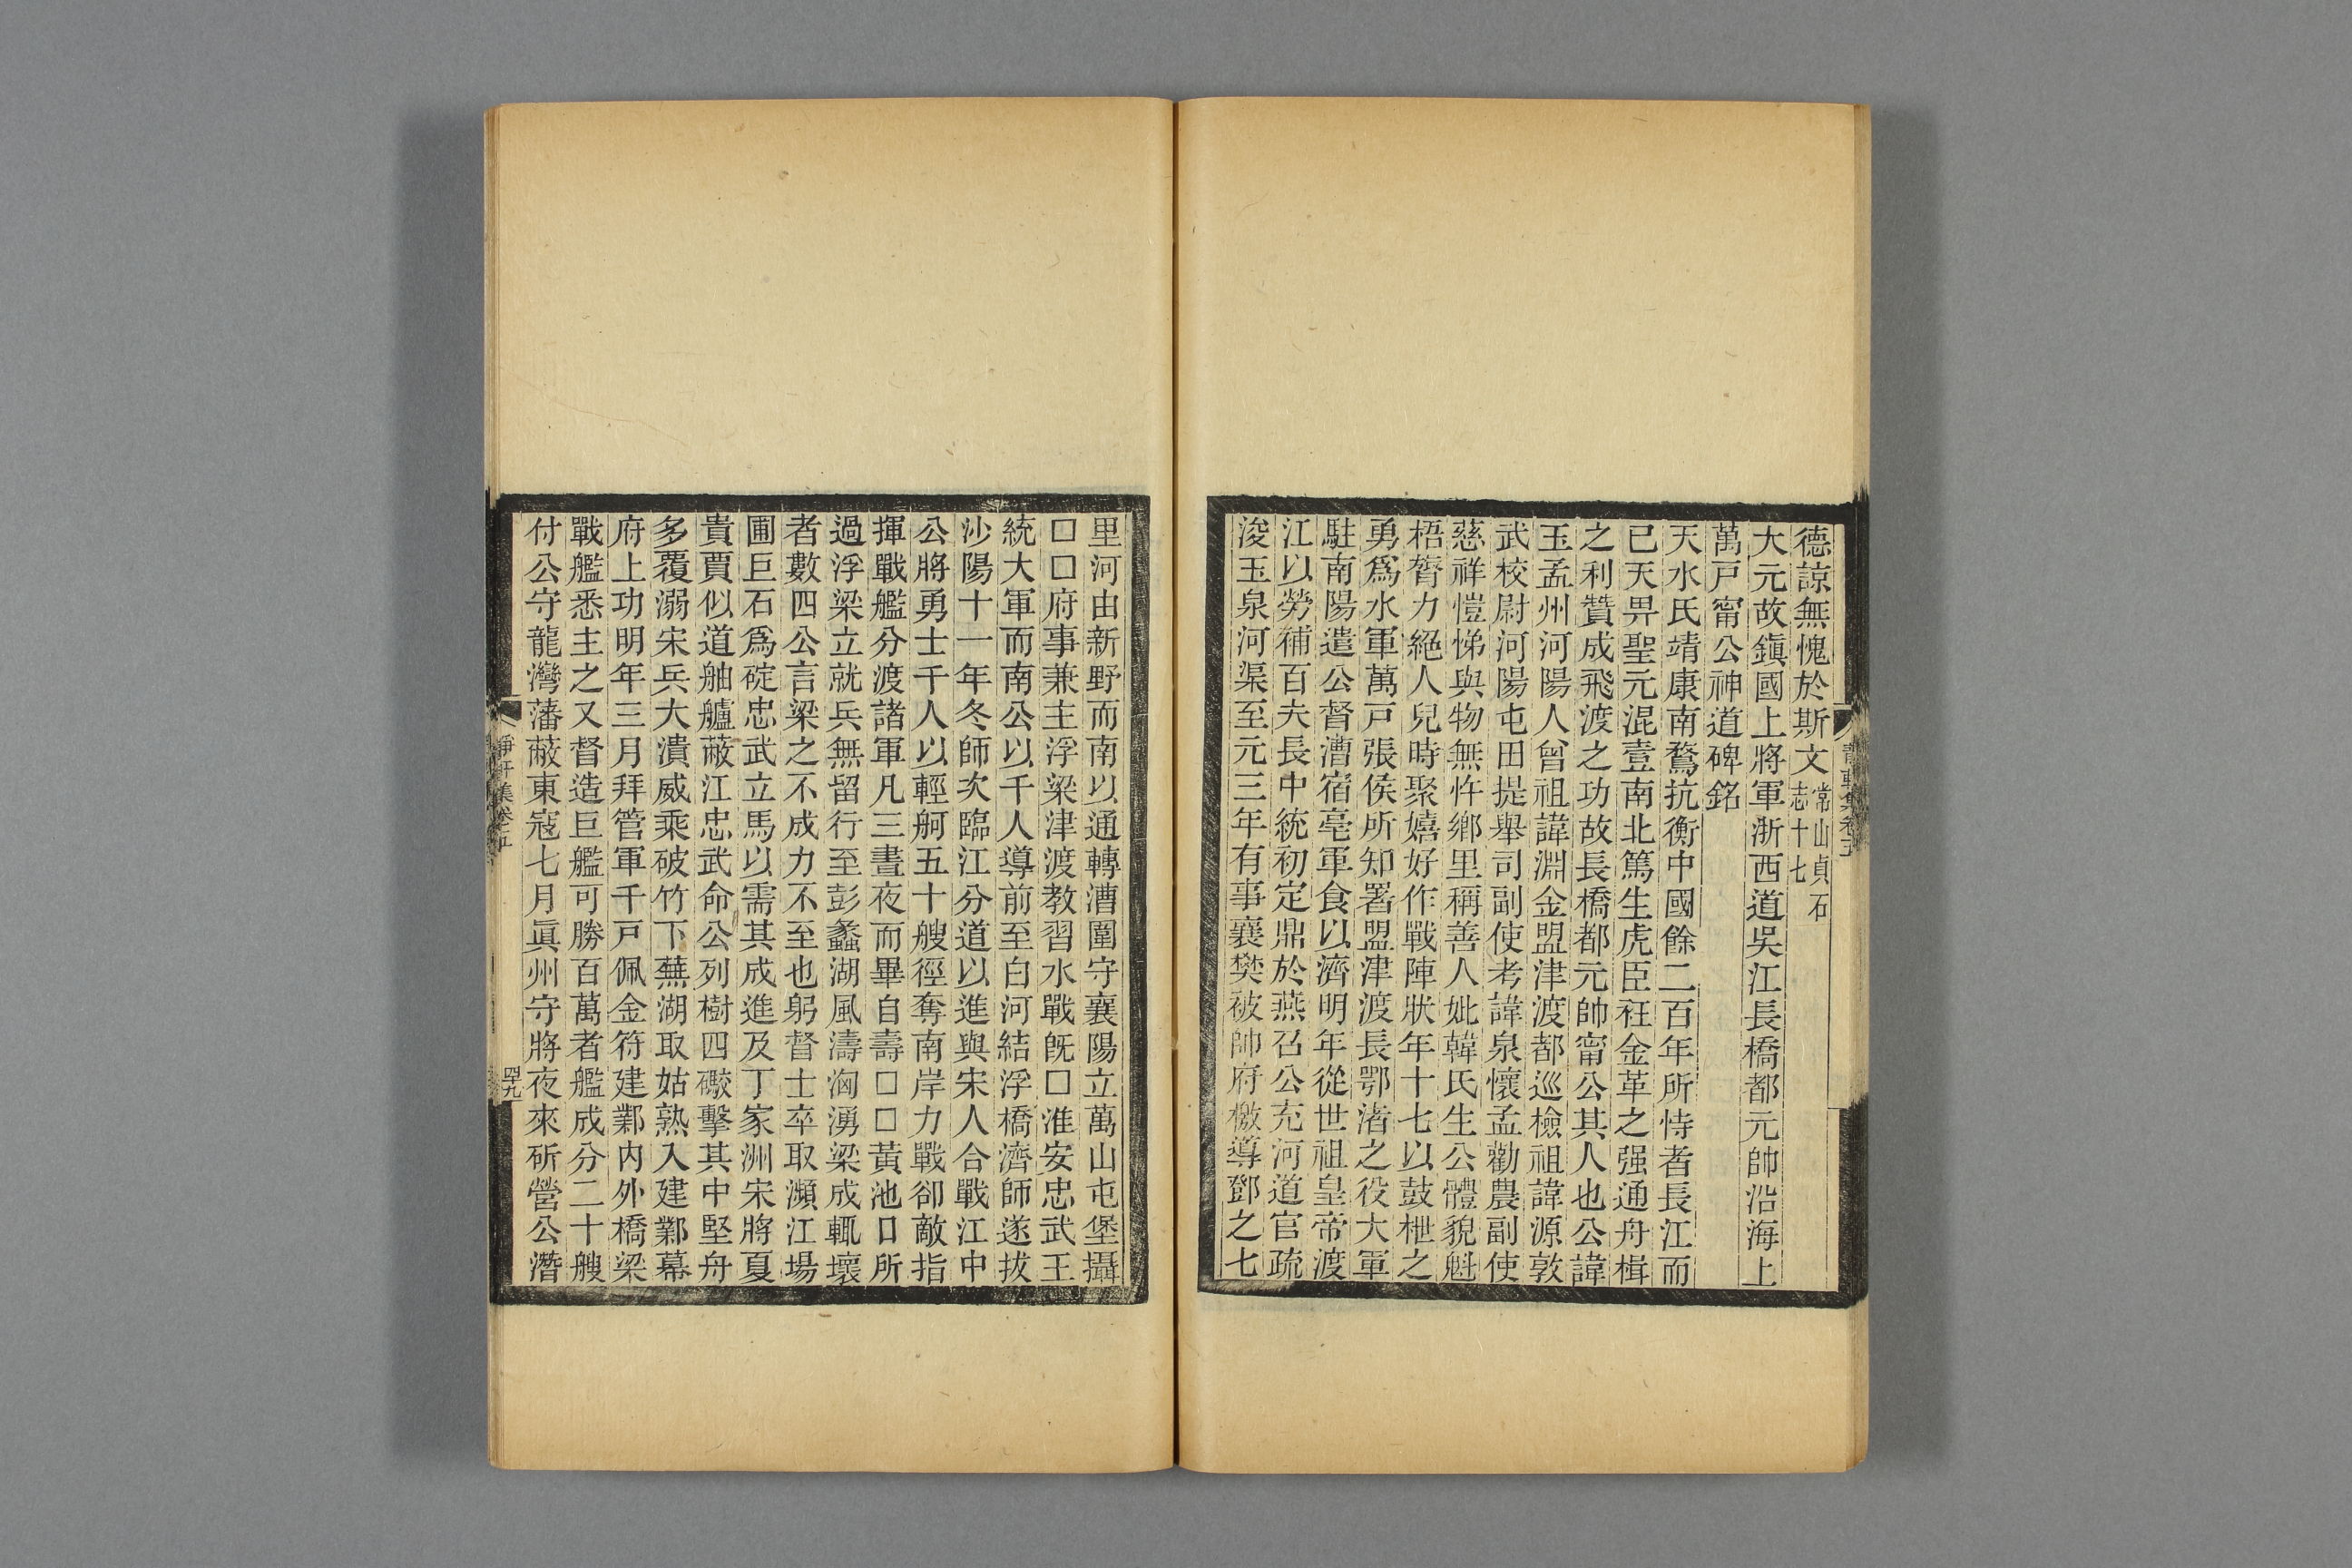 德諒無愧於斯文常山貞石志十七
大元故鎭國上將軍浙西道吳江長橋都元帥沿海上
萬戸甯公神道碑銘
天水氏靖康南鶩抗衡中國餘二百年所恃者長江而
已天畀聖元混壹南北篤生虎臣衽金革之强通舟楫
之利贊成飛渡之功故長橋都元帥甯公其人也公諱
玉孟州河陽人曾祖諱淵金盟津渡都巡檢祖諱源敦
武校尉河陽屯田提舉司副使考諱泉懷孟勸農副使
慈祥愷悌與物無忤鄉里稱善人妣韓氏生公體貌魁
梧膂力絕人兒時聚嬉好作戰陣狀年十七以鼓枻之
勇爲水軍萬戸張侯所知署盟津渡長鄂渚之役大軍
駐南陽遣公督漕宿亳軍食以濟明年從世祖皇帝渡
江以勞補百夫長中統初定鼎於燕召公充河道官疏
浚玉泉河渠至元三年有事襄樊被帥府檄導鄧之七
里河由新野而南以通轉漕圍守襄陽立萬山屯堡攝
□□府事兼主浮梁津渡教習水戰旣□淮安忠武王
統大軍而南公以千人導前至白河結浮橋濟師遂拔
沙陽十一年冬師次臨江分道以進與宋人合戰江中
公將勇士千人以輕舸五十艘徑奪南岸力戰卻敵指
揮戰艦分渡諸軍凡三晝夜而畢自壽□□黃池口所
過浮梁立就兵無留行至彭蠡湖風濤洶湧梁成輒壞
者數四公言梁之不成力不至也躬督士卒取瀕江場
圃巨石爲碇忠武立馬以需其成進及丁家洲宋將夏
貴賈似道舳艫蔽江忠武命公列樹四礮擊其中堅舟
多覆溺宋兵大潰威乘破竹下蕪湖取姑熟入建鄴幕
府上功明年三月拜管軍千戸佩金符建鄴内外橋梁
戰艦悉主之又督造巨艦可勝百萬者艦成分二十艘
付公守龍灣藩蔽東寇七月眞州守將夜來斫營公潛
靜軒集卷五
四九